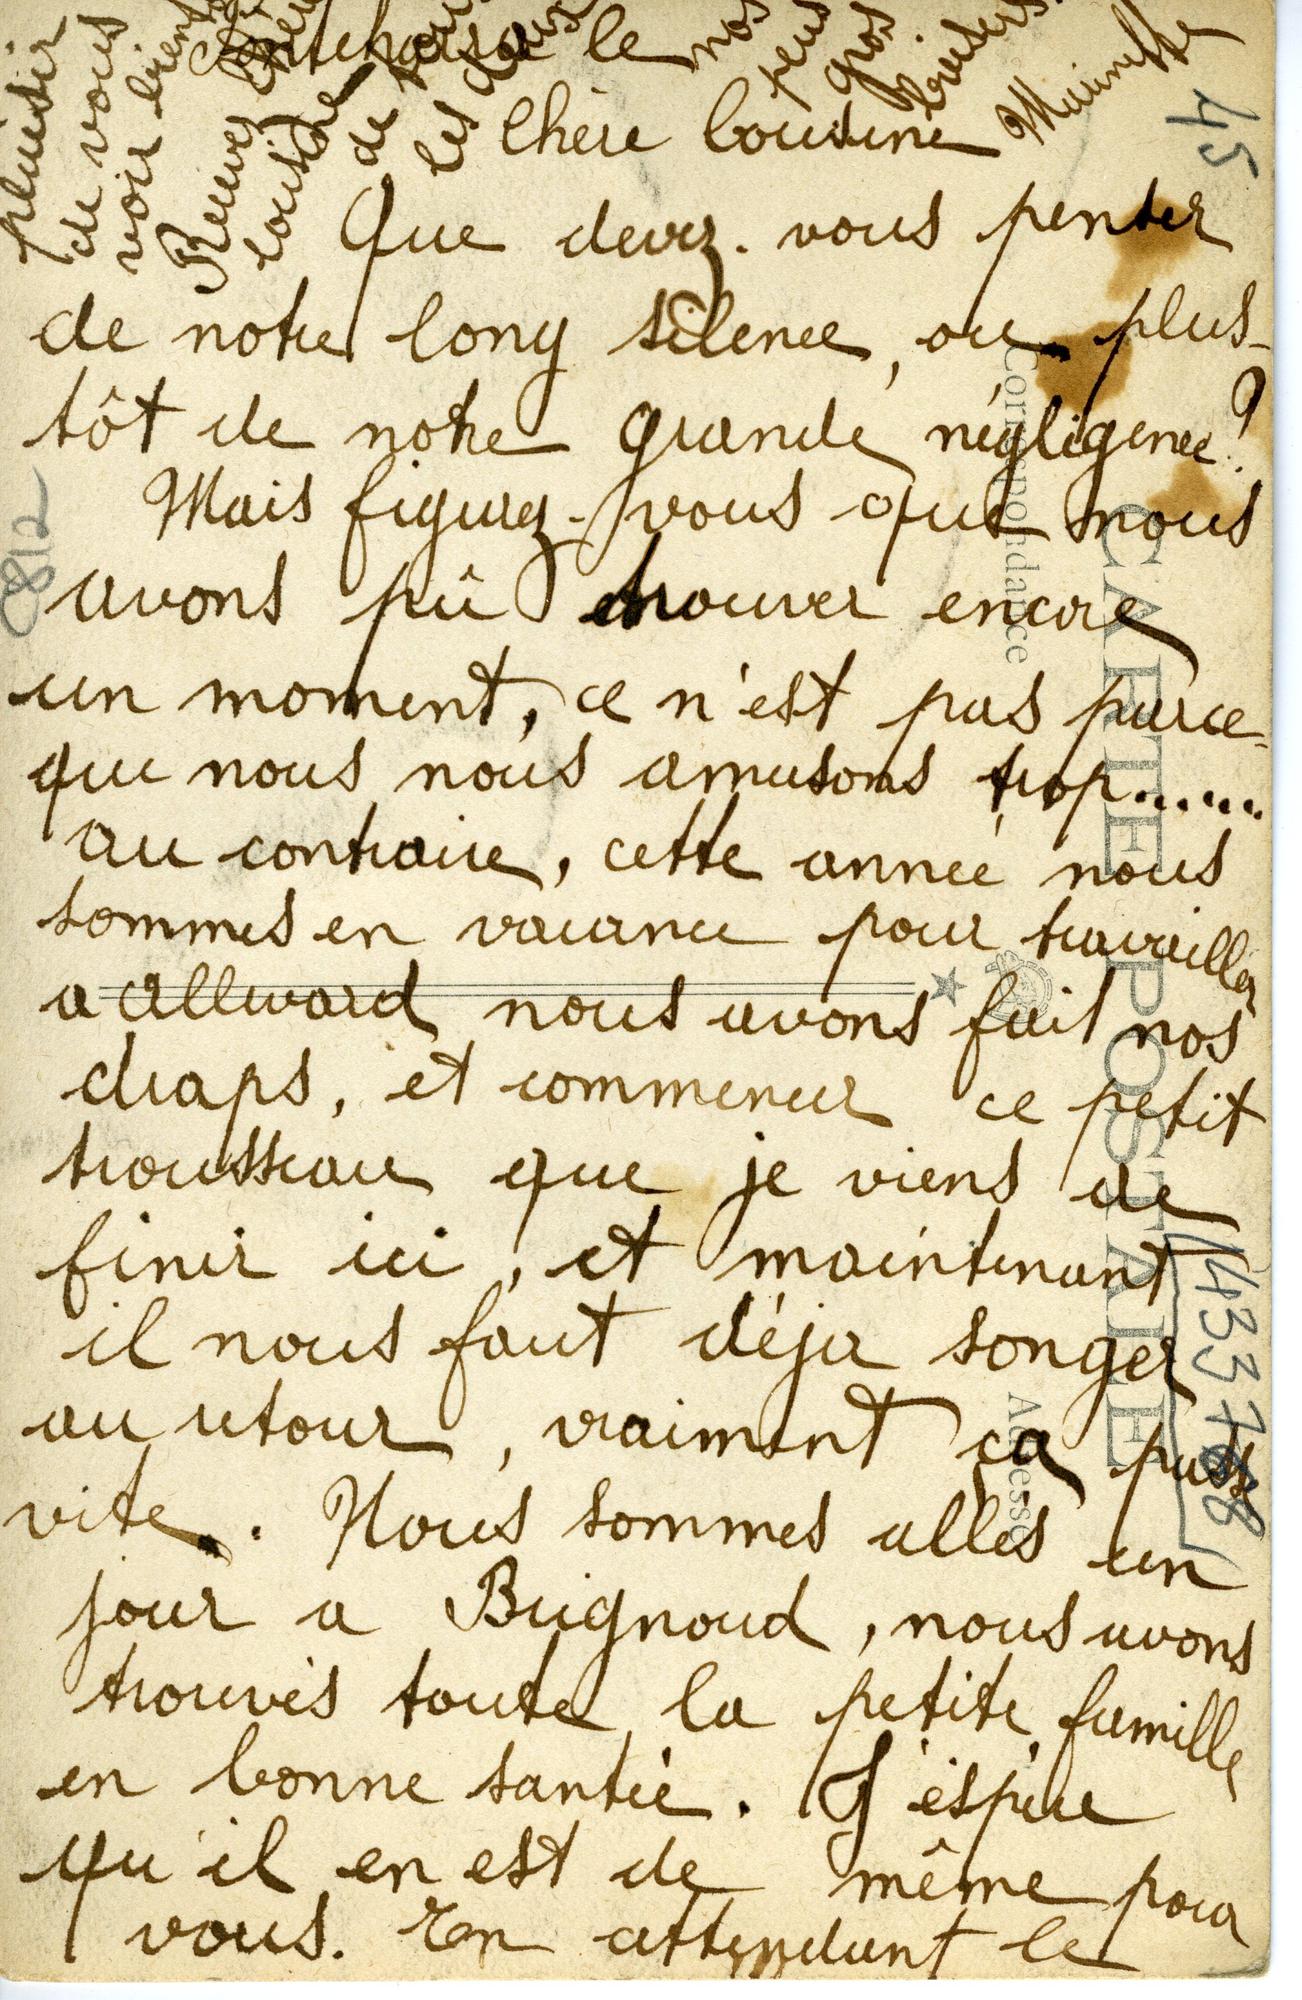 le
Chère Cousine
Que devez-vous penser
de notre long silence, ou plus-
tôt de notre grande négligence?
Mais figurez-vous que nous
avons pû trouver encore
un moment, ce n'est pas parce-
que nous nous amusons trop......
au contraire, cette année nous
sommes en vacance pour travailler
a Allevard nous avons fait nos
draps, et commencer ce petit
trousseau que je viens de
finir ici, et maintenant
il nous faut déja songer
au retour, vraiment ça passe
vite. Nous sommes allés un
jour a Brignoud, nous avons
trouvés toute la petite famille
en bonne santée. J'éspère
qu'il en est de même pour
vous. En attendant le
plaisir
de vous
voir
Recevez
de
les deux
nos
plus
gros
baisers
45
812
CARTE POSTALE
Correspondance
Adresse